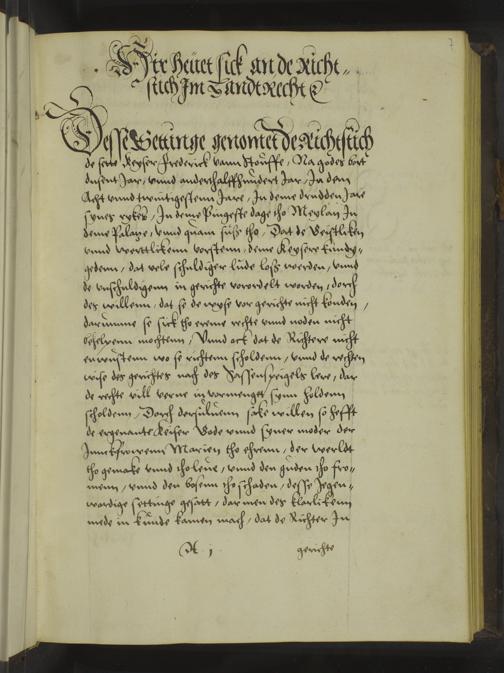 7
Hir heuet sick an de Richt=
stich Im LandtRecht
Desse Settinge genomet de Richtstich
de sette Keyser Frederick vann Stouffe, Na godes bort
dusent Jar, vnnd anderthalffhundert Jar, In dem
Acht vnnd twintigestenn Jare, In deme drudden Jare
synes rykes, In deme Pingeste dage tho Meylan In
deme Palaze, vnnd quam suss tho, Dat de Geistliken
vnnd werttlikenn vorstenn deme Keysere kundy=
gedenn, dat vele schuldiger lude loss werden, vnnd
de vnschuldigenn in gerichte vorordelt worden, dorch
des willenn, dat se de wyse vor gerichte nicht konden,
darumme se sick tho erenn rechte vnnd noden nicht
behelpenn mochtenn, Vnnd ock dat de Richtere nicht
enwustenn wo se richtenn scholdenn, vnnd de rechten
wise des gerichtes nach des Sassenspeigels lere, dar
de rechte vill verne in vormenget synn holdenn
scholdenn, Dorch dersuluenn sake willen so hefft
de ergenante Keiser Gode vnnd syner moder der
Junckfrowenn Marien tho ehrenn, der werldt
tho gemake vnnd tho leue, vnnd den guden tho fro=
menn, vnnd den bosenn tho schaden, desse Jegen=
wardige settinge gesatt, dar men des klarlikenn
mede in kunde kamen mach, dat de Richter In
A. j.
gerichte